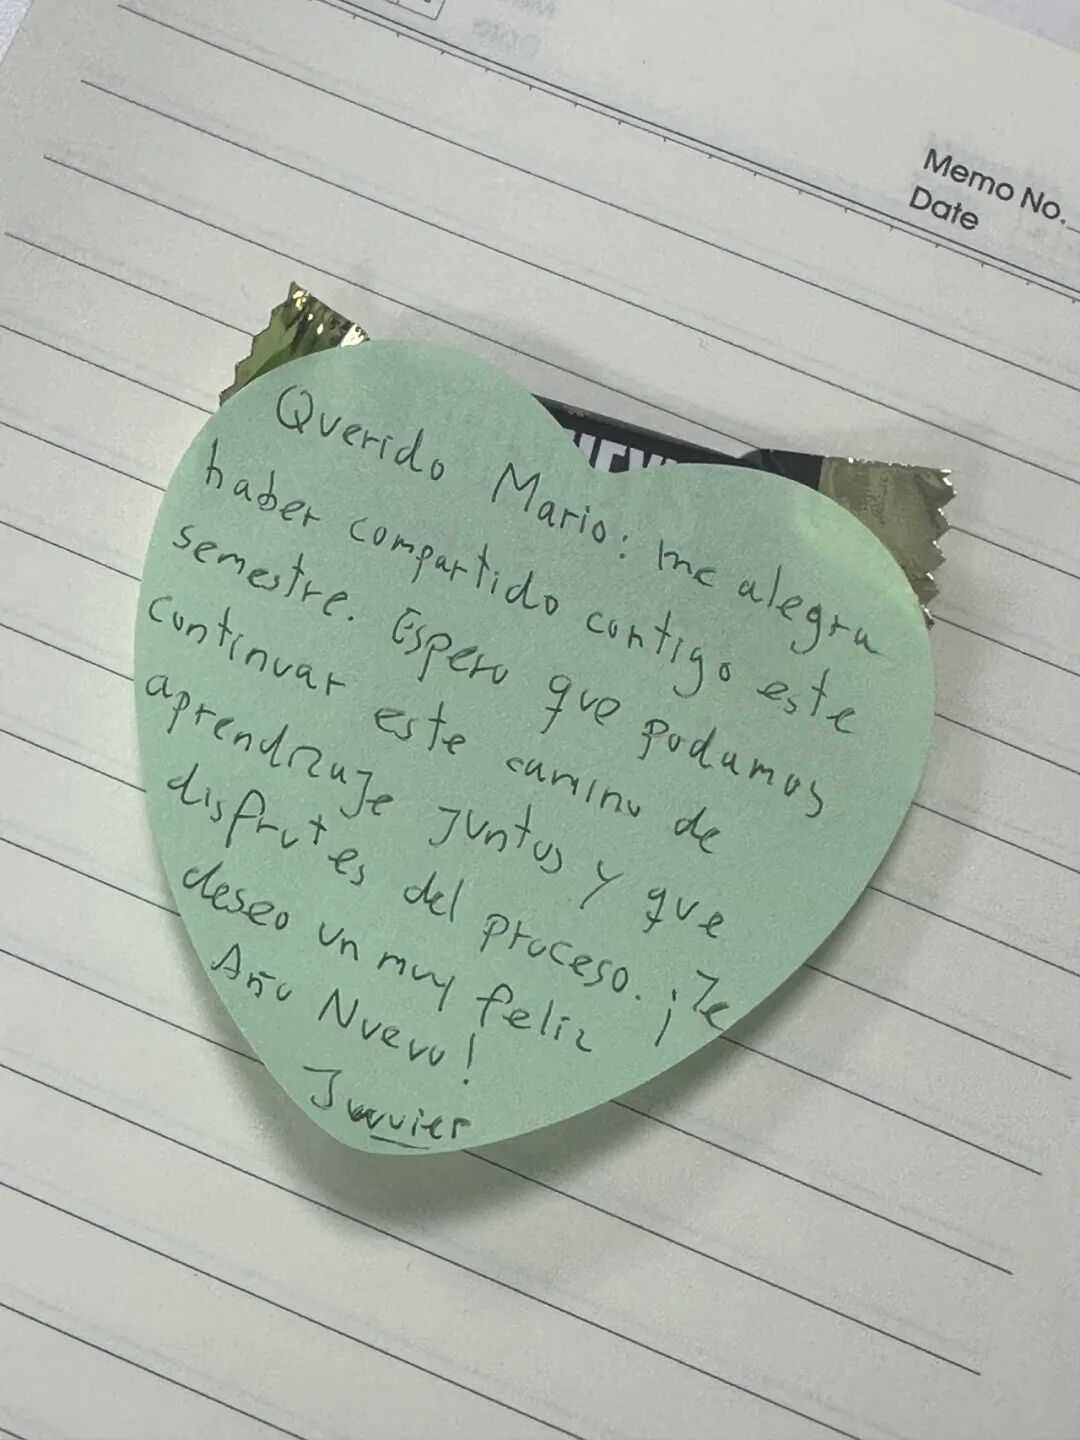 Memo No.
Date
Querido Mario: me alegra
haber compartido contigo este
semestre. Espero que podamos
continuar este camino de
aprendizaje juntos y que
disfrutes del proceso. ¡Te
deseo un muy feliz
Año Nuevo!
Javier